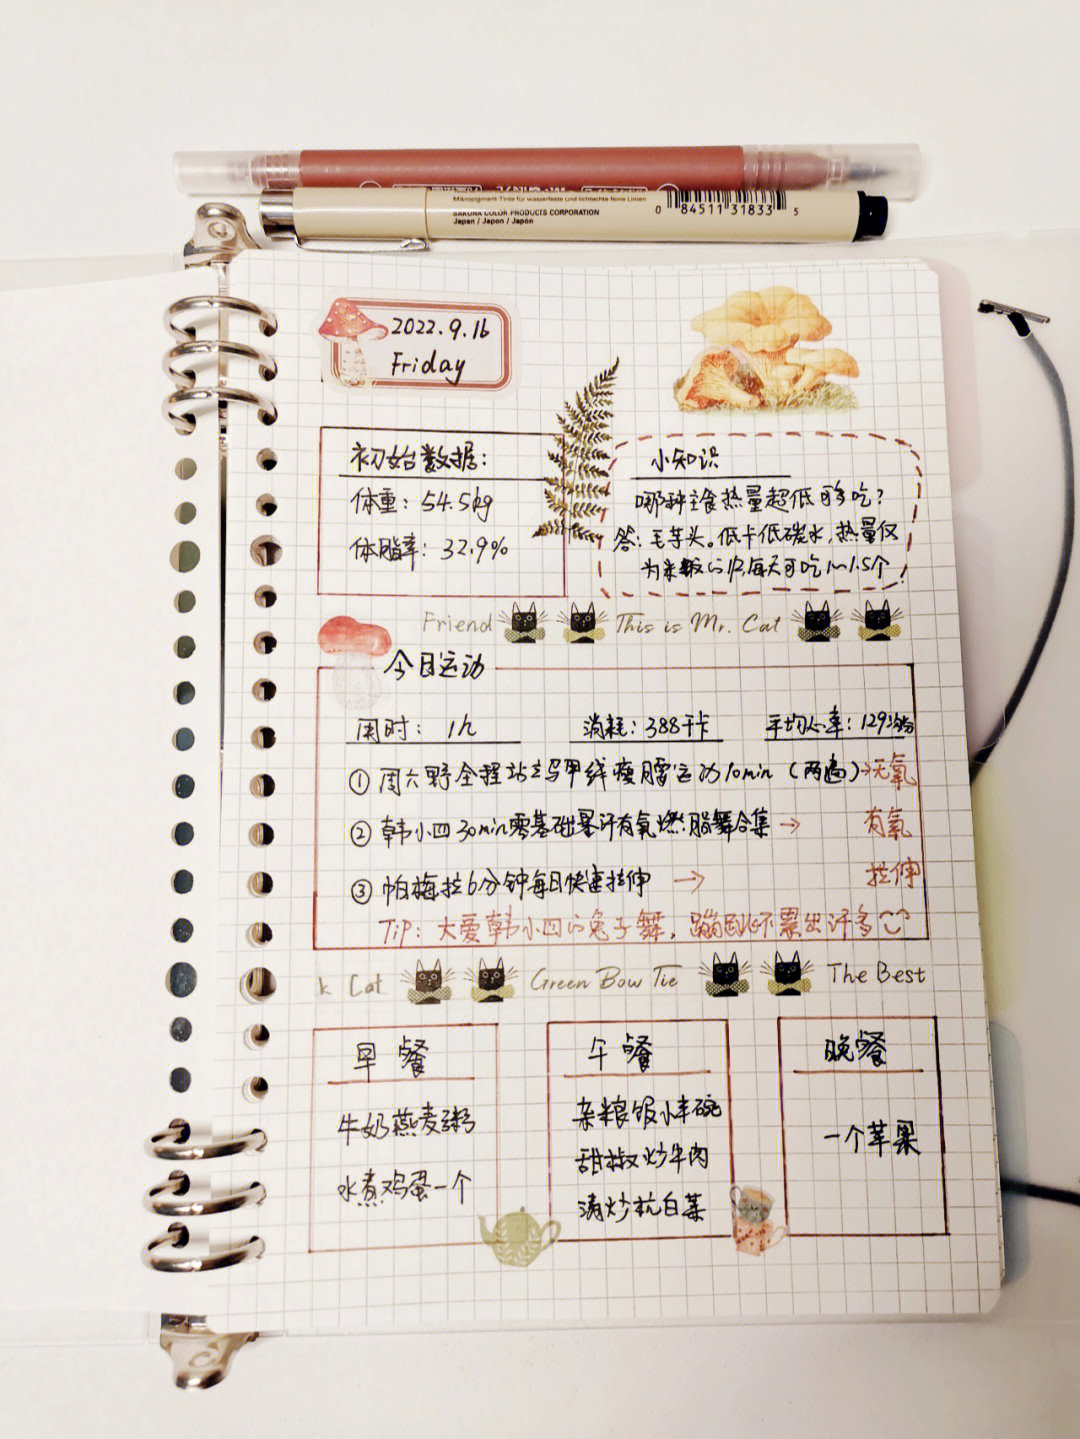 Mikropigment-Tinte für wasserfeste und lichtechte feine Linien
SAKURA COLOR PRODUCTS CORPORATION
Japan / Japon / Japón
0 84511 31833 5
2022.9.16
Friday
初始数据：
体重：54.5kg
体脂率：32.9%
小知识
哪种主食热量超低可多吃？
答：毛芋头。低卡低碳水，热量仅
为米饭的1/2,每天可吃1~1.5个！
Friend
This is Mr. Cat
今日运动
用时：1h 消耗：388千卡 平均心率：129次/分
① 周六野全程站立马甲线瘦腰运动10min（两遍）→无氧
② 韩小四30min零基础暴汗有氧燃脂舞合集→ 有氧
③ 帕梅拉6分钟每日快速拉伸 → 拉伸
Tip：大爱韩小四的兔子舞，蹦到怀累出汗多
k Cat
Green Bow Tie
The Best
早餐
牛奶燕麦粥
水煮鸡蛋一个
午餐
杂粮饭小半碗
甜椒炒牛肉
清炒杭白菜
晚餐
一个苹果